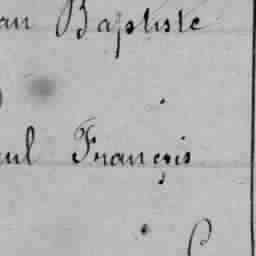 an Baptiste
ul François